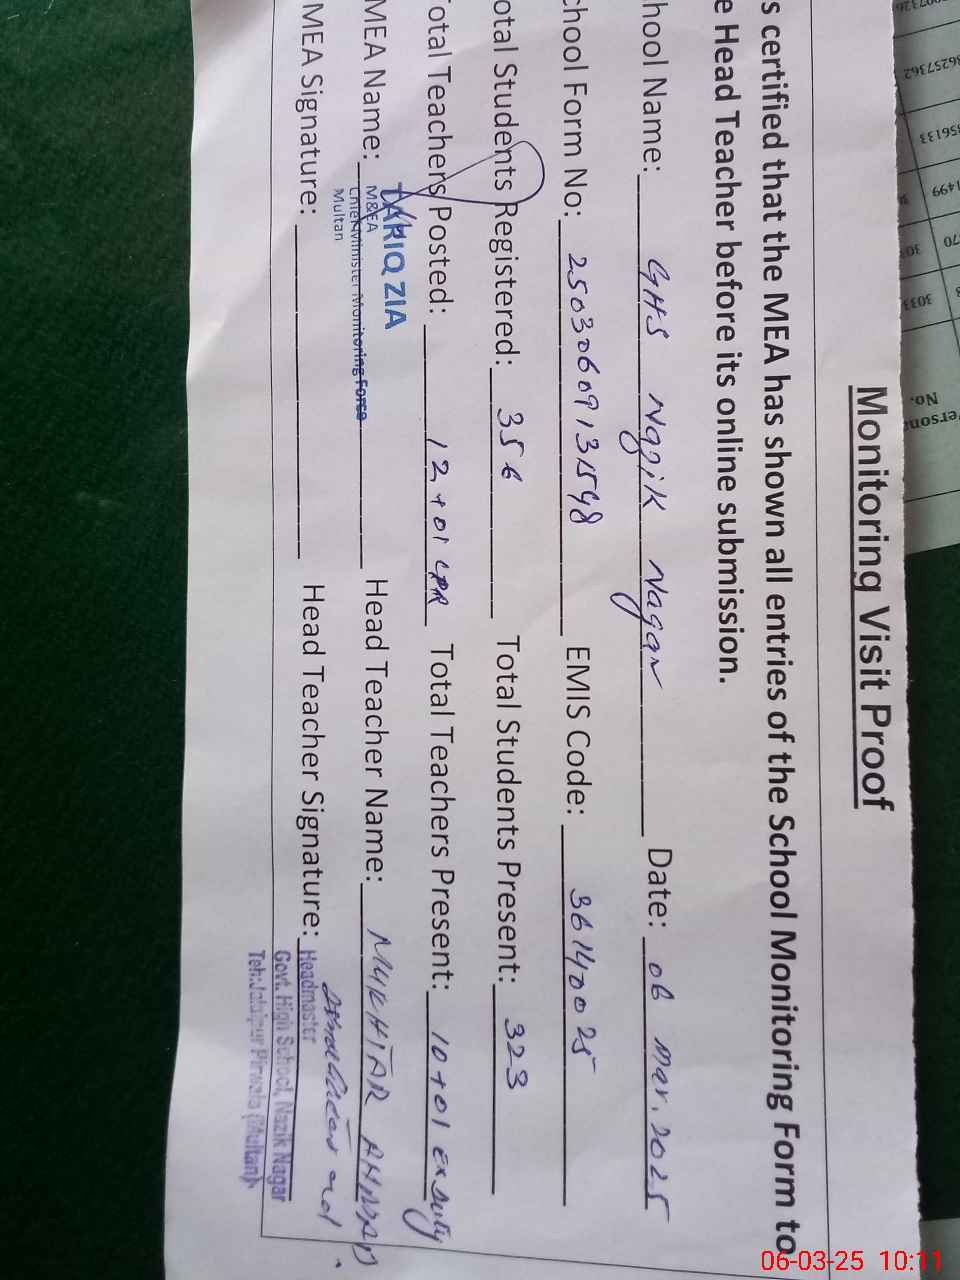 Monitoring Visit Proof
s certified that the MEA has shown all entries of the School Monitoring Form to
e Head Teacher before its online submission.
hool Name: GHS Nazik Nagar Date: 06 Mar. 2025
chool Form No: EMIS Code: 36140025
otal Students Registered: 356 Total Students Present: 323
Total Teachers Posted: 12 + 01 Total Teachers Present: 10 + 01 Ex duty
MEA Name: TARIQ ZIA Head Teacher Name: MUKHTAR AHMAD
M&EA
Chief Minister Monitoring Force
Multan
MEA Signature: Head Teacher Signature:
Headmaster
Govt. High School, Nazik Nagar
Teh: Jalalpur Pirwala (Multan)
Persona
No.
06-03-25 10:11